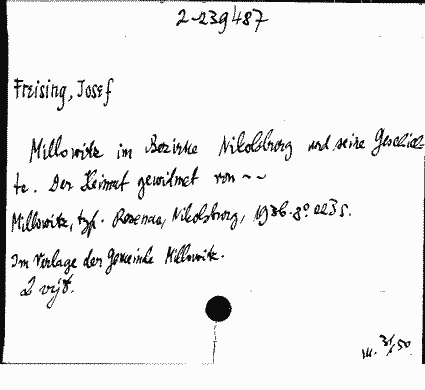 2-239487
Freising, Josef
Millowitz im Bezirke Nikolsburg und seine Geschich-
te. Der Heimat gewidmet von ~ ~
Millowitz, typ. Rosenau, Nikolsburg, 1936. 8°. 223 s.
Im Verlage der Gemeinde Millowitz.
2 výt.